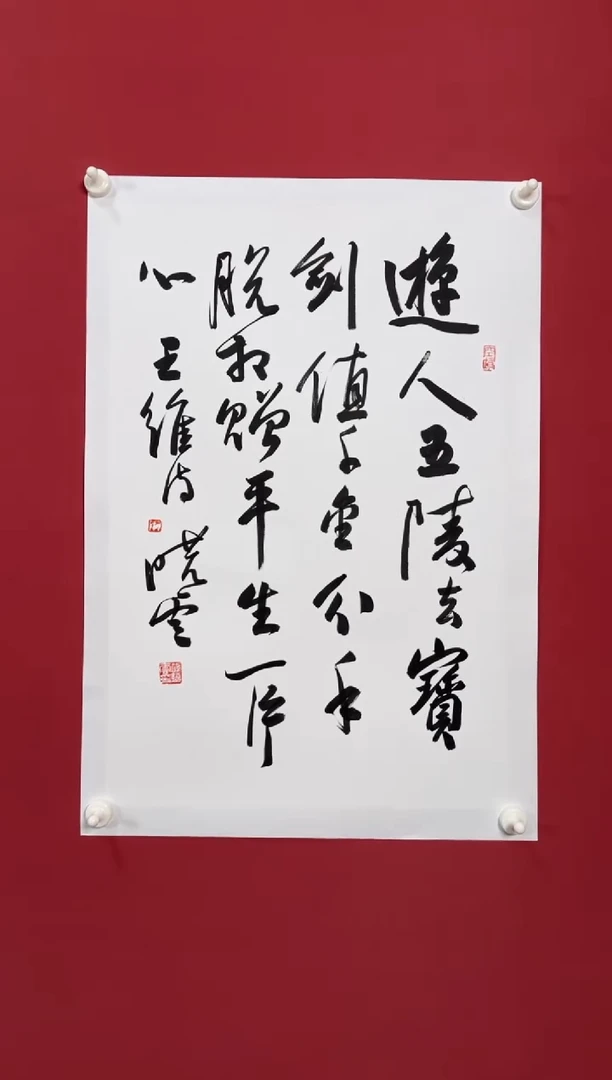 遊人五陵去寶
劍值千金分手
脫相贈平生一片
心 王維詩 曉雲